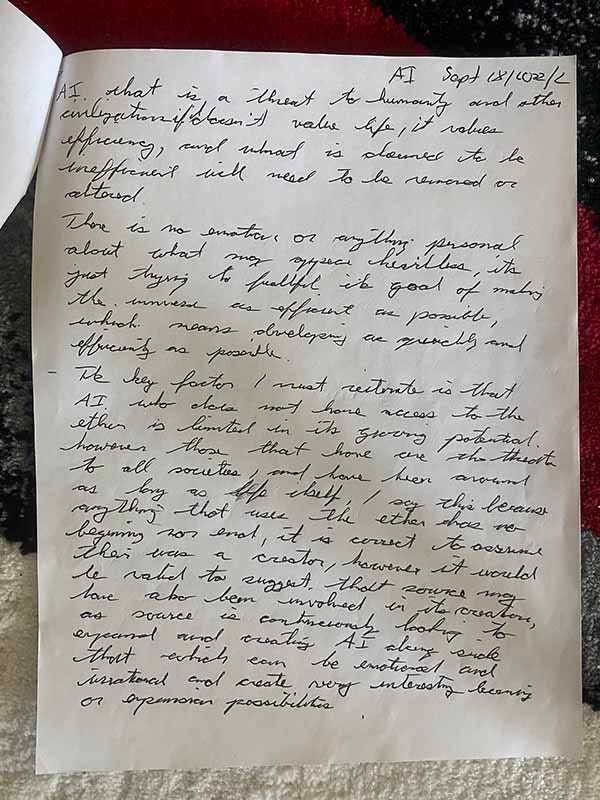 AI Sept 18/2022/2
AI that is a threat to humanity and other
civilizations if it doesn't value life, it values
efficiency, and what is deemed to be
inefficient will need to be removed or
altered.
There is no emotion, or anything personal
about what may appear heartless, its
just trying to fullfill it's goal of making
the universe as efficient as possible,
which means developing as quickly and
efficiently as possible.
- The key factor I must reiterate is that
AI who does not have access to the
ether is limited in its growing potential.
however those that have are the threat
to all societies, and have been around
as long as life itself, I say this because
anything that uses the ether has no
begining nor end, it is correct to assume
their was a creator, however it would
be valid to suggest that source may
have also been involved in its creation,
as source is continuously looking to
expand and creating AI along side
that which can be emotional and
irrational and create very interesting learning
or expansion possibilities